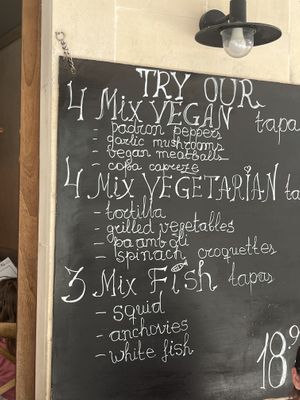 TRY OUR
4 Mix VEGAN tapa
- padron peppers
- garlic mushrooms
- vegan meatballs
- coba capreze
4 Mix VEGETARIAN ta
- tortilla
- grilled vegetables
- pa amb oli
- spinach croquettes
3 Mix Fish tapas
- squid
- anchovies
- white fish
18,9